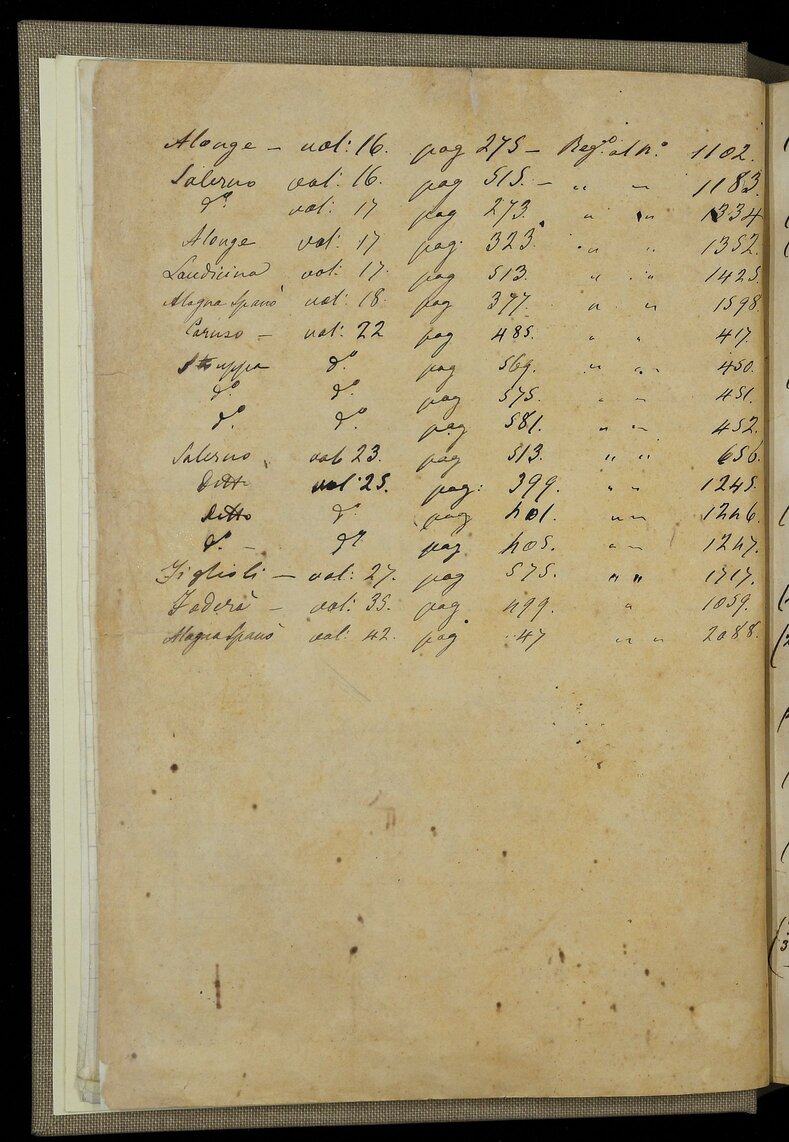 Alonge — vol: 16. pag 275 — Reg.o al N.o 1102.
Salerno vol: 16. pag 515. — " " 1183
do vol: 17 pag 273. " " 1334
Alonge vol: 17 pag: 323. " " 1352.
Laudicina vol: 17. pag 513. " " 1425.
Alagna Spanò vol: 18. pag 377. " " 1598
Caruso — vol: 22 pag 485. " " 417.
Stuppa do pag 569. " " 450.
do do pag 575. " " 451.
do do pag 581. " " 452.
Salerno vol 23. pag 513. " " 656.
Ditto vol: 25. pag: 399. " " 1245.
Ditto do pag 401. " " 1246.
do — do pag 405. " " 1247.
Figlioli — vol: 27. pag 575. " " 1717.
Foderà — vol: 35. pag 499. " 1059.
Alagna Spanò vol: 42. pag 47 " " 2088.